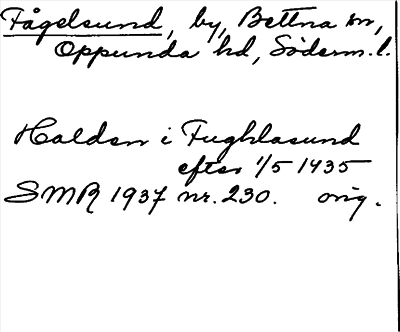 Fågelsund, by, Bettna sn,
Oppunda hd, Söderm. l.
Haldsn i Fughlasund
efter 1/5 1435
SMR 1937 nr. 230. orig.